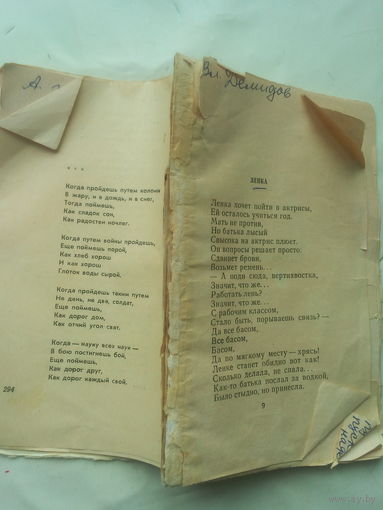 А.
* * *
Когда пройдешь путем колонн
В жару, и в дождь, и в снег,
Тогда поймешь,
Как сладок сон,
Как радостен ночлег.
Когда путем войны пройдешь,
Еще поймешь порой,
Как хлеб хорош
И как хорош
Глоток воды сырой.
Когда пройдешь таким путем
Не день, не два, солдат,
Еще поймешь,
Как дорог дом,
Как отчий угол свят.
Когда — науку всех наук —
В бою постигнешь бой,
Еще поймешь,
Как дорог друг,
Как дорог каждый свой,
294
Вл. Демидов
ЛЕНКА
Ленка хочет пойти в актрисы,
Ей осталось учиться год.
Мать не против,
Но батька лысый
Свысока на актрис плюет.
Он вопросы решает просто:
Сдвинет брови,
Возьмет ремень...
— А поди сюда, вертихвостка,
Значит, что ж...
Работать лень?
Значит, что ж...
С рабочим классом,
Стало быть, порываешь связь? —
Да все басом,
Все басом,
Басом,
Да по мягкому месту — хрясь!
Ленке станет обидно вот как!
Сколько делала, не спала...
Как-то батька послал за водкой,
Было стыдно, но принесла.
9